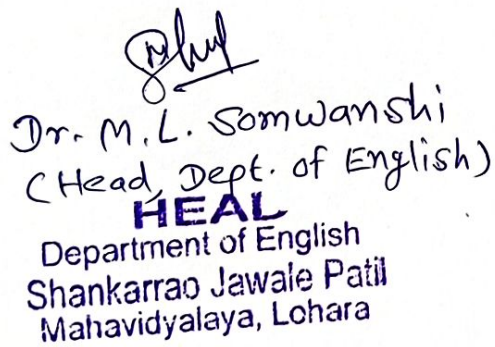 Dr. M. L. Somwanshi
(Head, Dept. of English)
HEAL
Department of English
Shankarrao Jawale Patil
Mahavidyalaya, Lohara